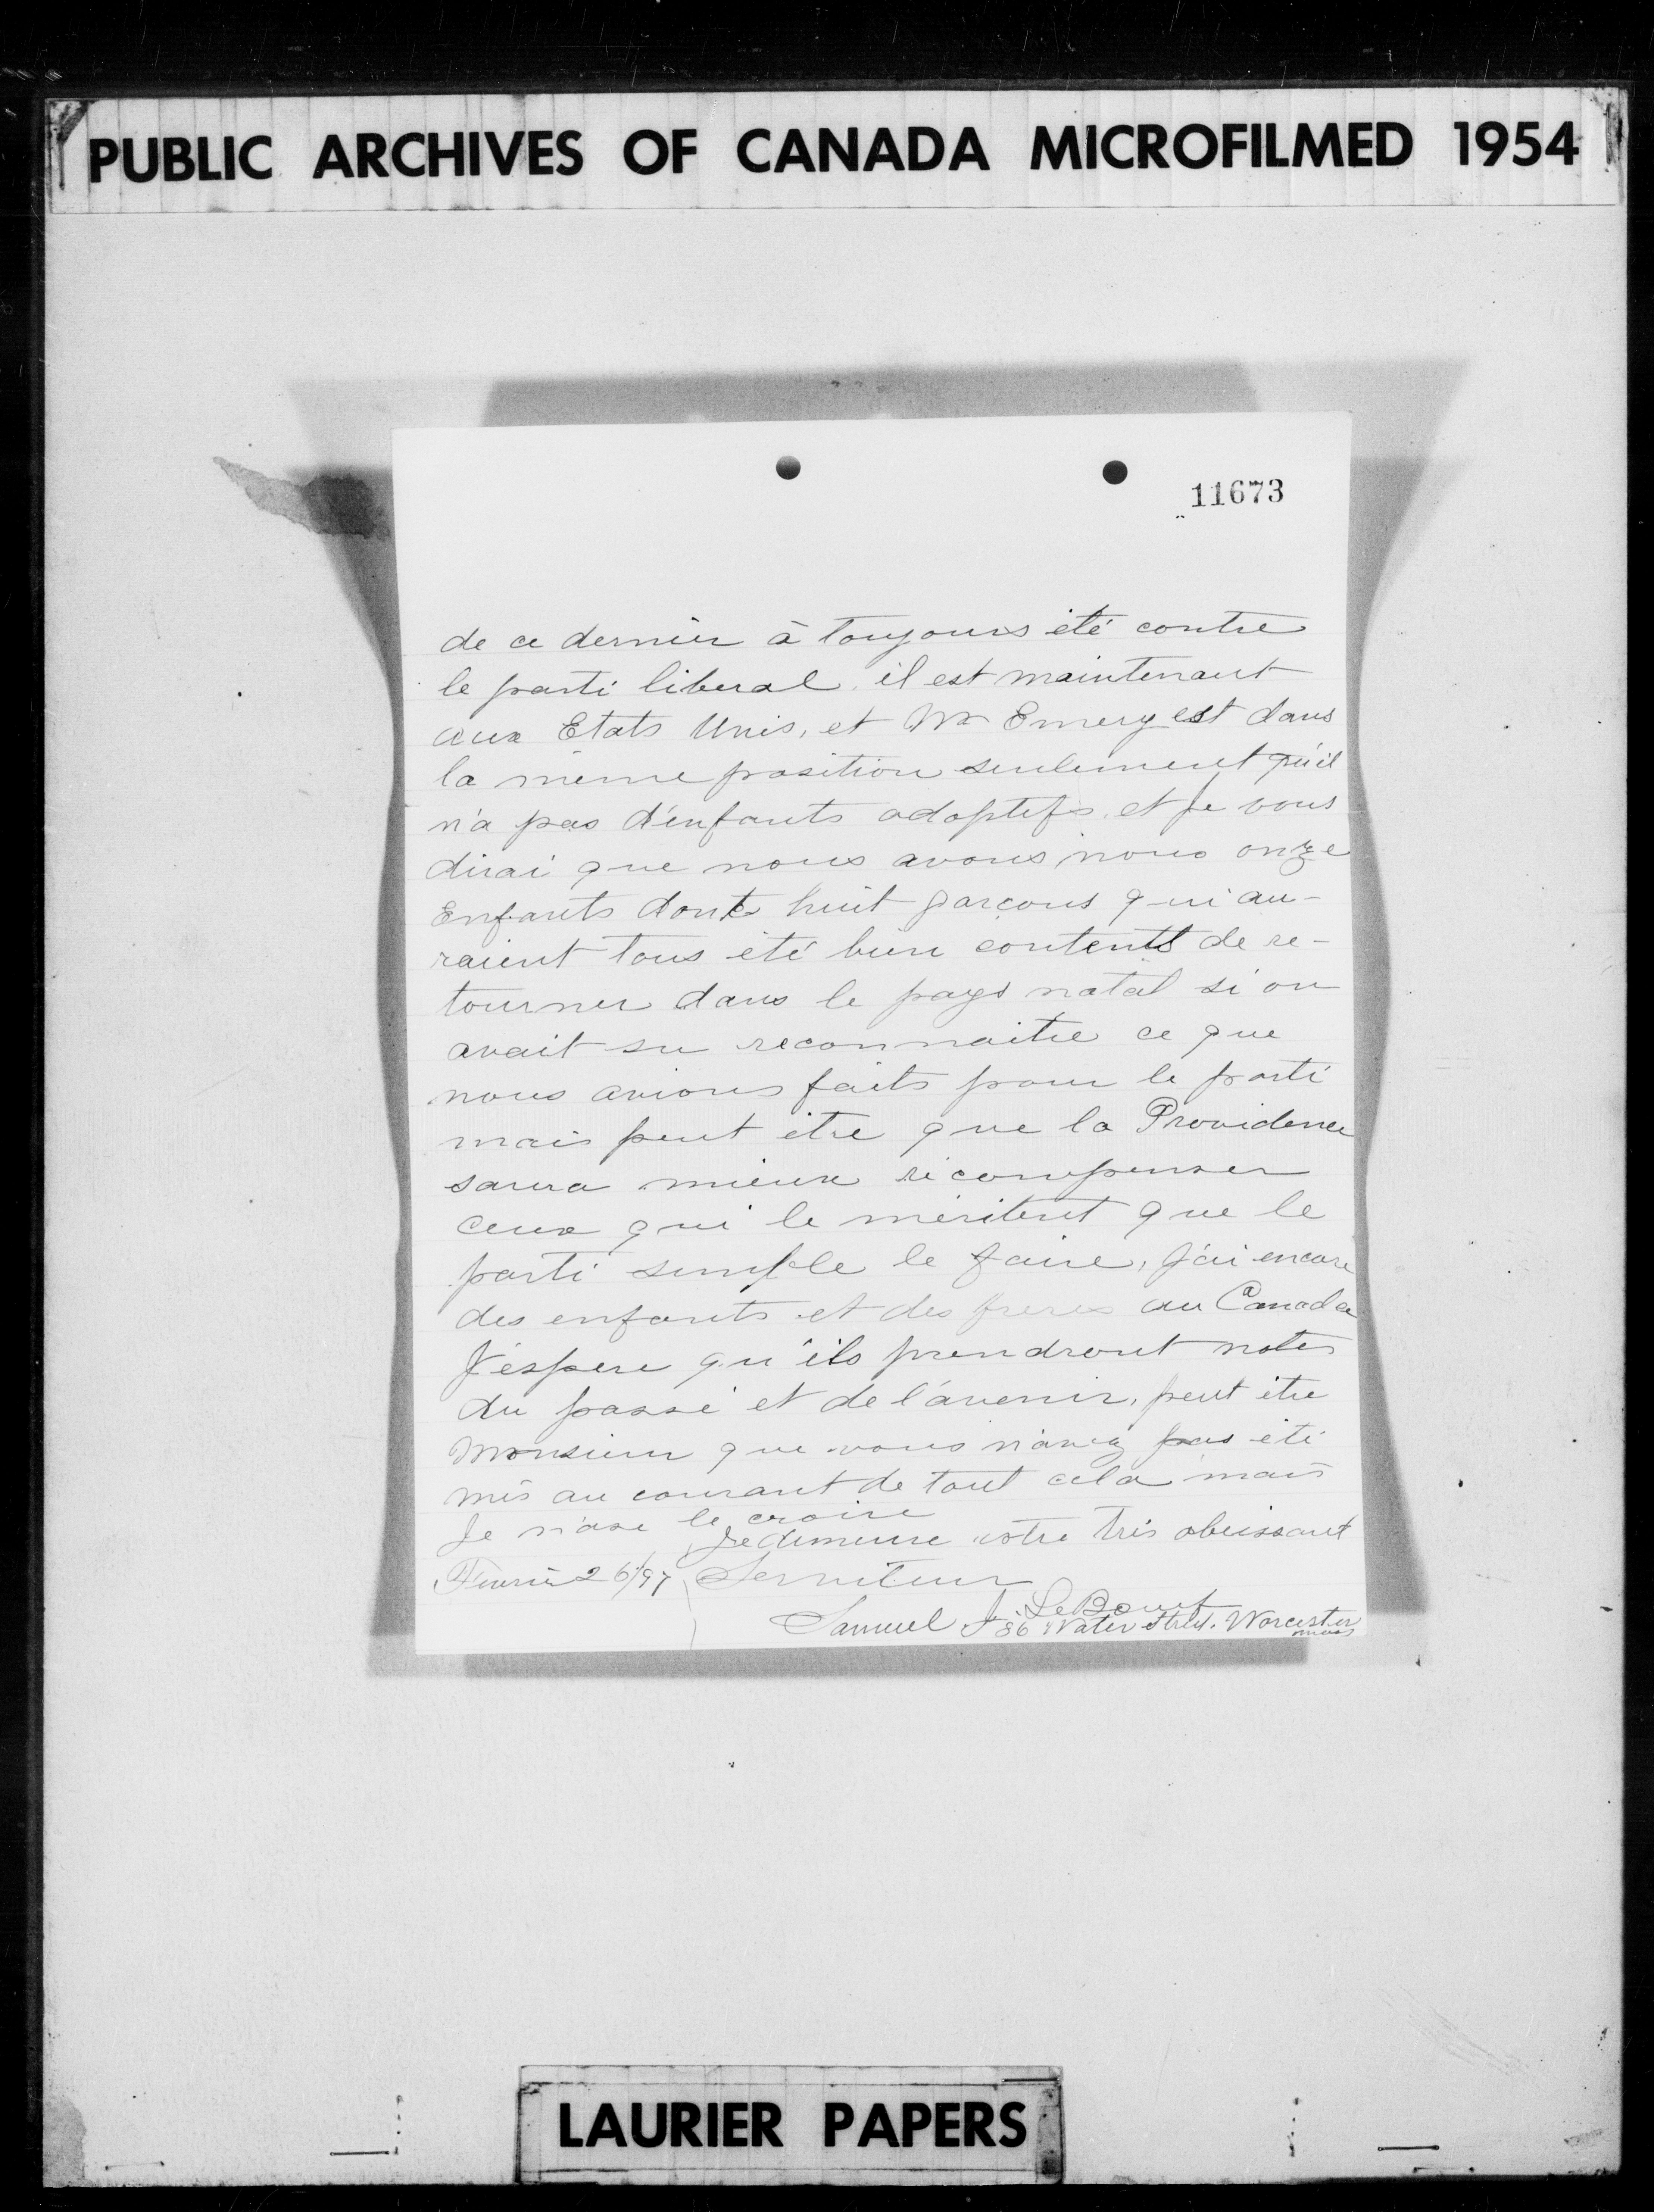 PUBLIC ARCHIVES OF CANADA MICROFILMED 1954
11673
de ce dernier à toujours été contre
le parti liberal. il est maintenant
aux Etats Unis, et Mr Emery est dans
la même position seulement qu'il
n'a pas d'enfants adoptifs. et je vous
dirai que nous avons nous onze
Enfants dont huit garçons qui au-
raient tous été bien contents de re-
tourner dans le pays natal si on
avait su reconnaitre ce que
nous avions faits pour le parti
mais peut être que la Providence
saura mieux récompenser
ceux qui le méritent que le
parti semble le faire, J'ai encore
des enfants et des freres au Canada
J'éspere qu'ils prendront notes
du passé et de l'avenir, peut être
Monsieur que vous n'avez pas été
mis au courant de tout cela mais
Je n'ose le croire
Je demeure votre très obeissant
Février 26/97 Serviteur
Samuel J. 
86 Water Street. Worcester
mass
LAURIER PAPERS